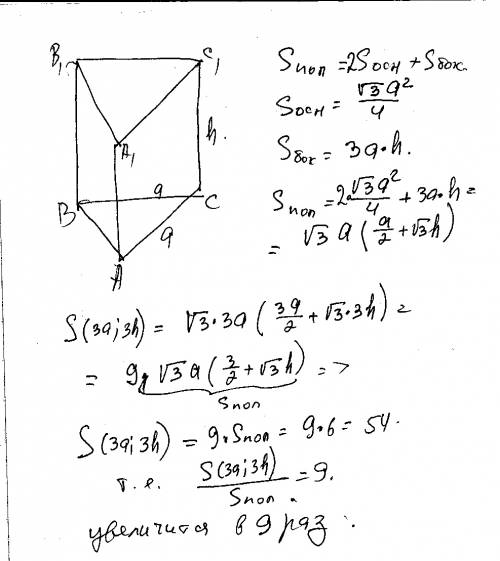 B₁ C₁
A₁ h.
a
B C
a
A
Sпол = 2Sосн + Sбок.
Sосн = √3a²/4
Sбок = 3a·h.
Sпол = 2·√3a²/4 + 3a·h =
= √3 a (a/2 + √3h)
S(3a;3h) = √3·3a (3a/2 + √3·3h) =
= 9· √3 a (3/2 + √3h) =>
Sпол
S(3a;3h) = 9·Sпол = 9·6 = 54.
т.е. S(3a;3h)/Sпол = 9.
увеличится в 9 раз.